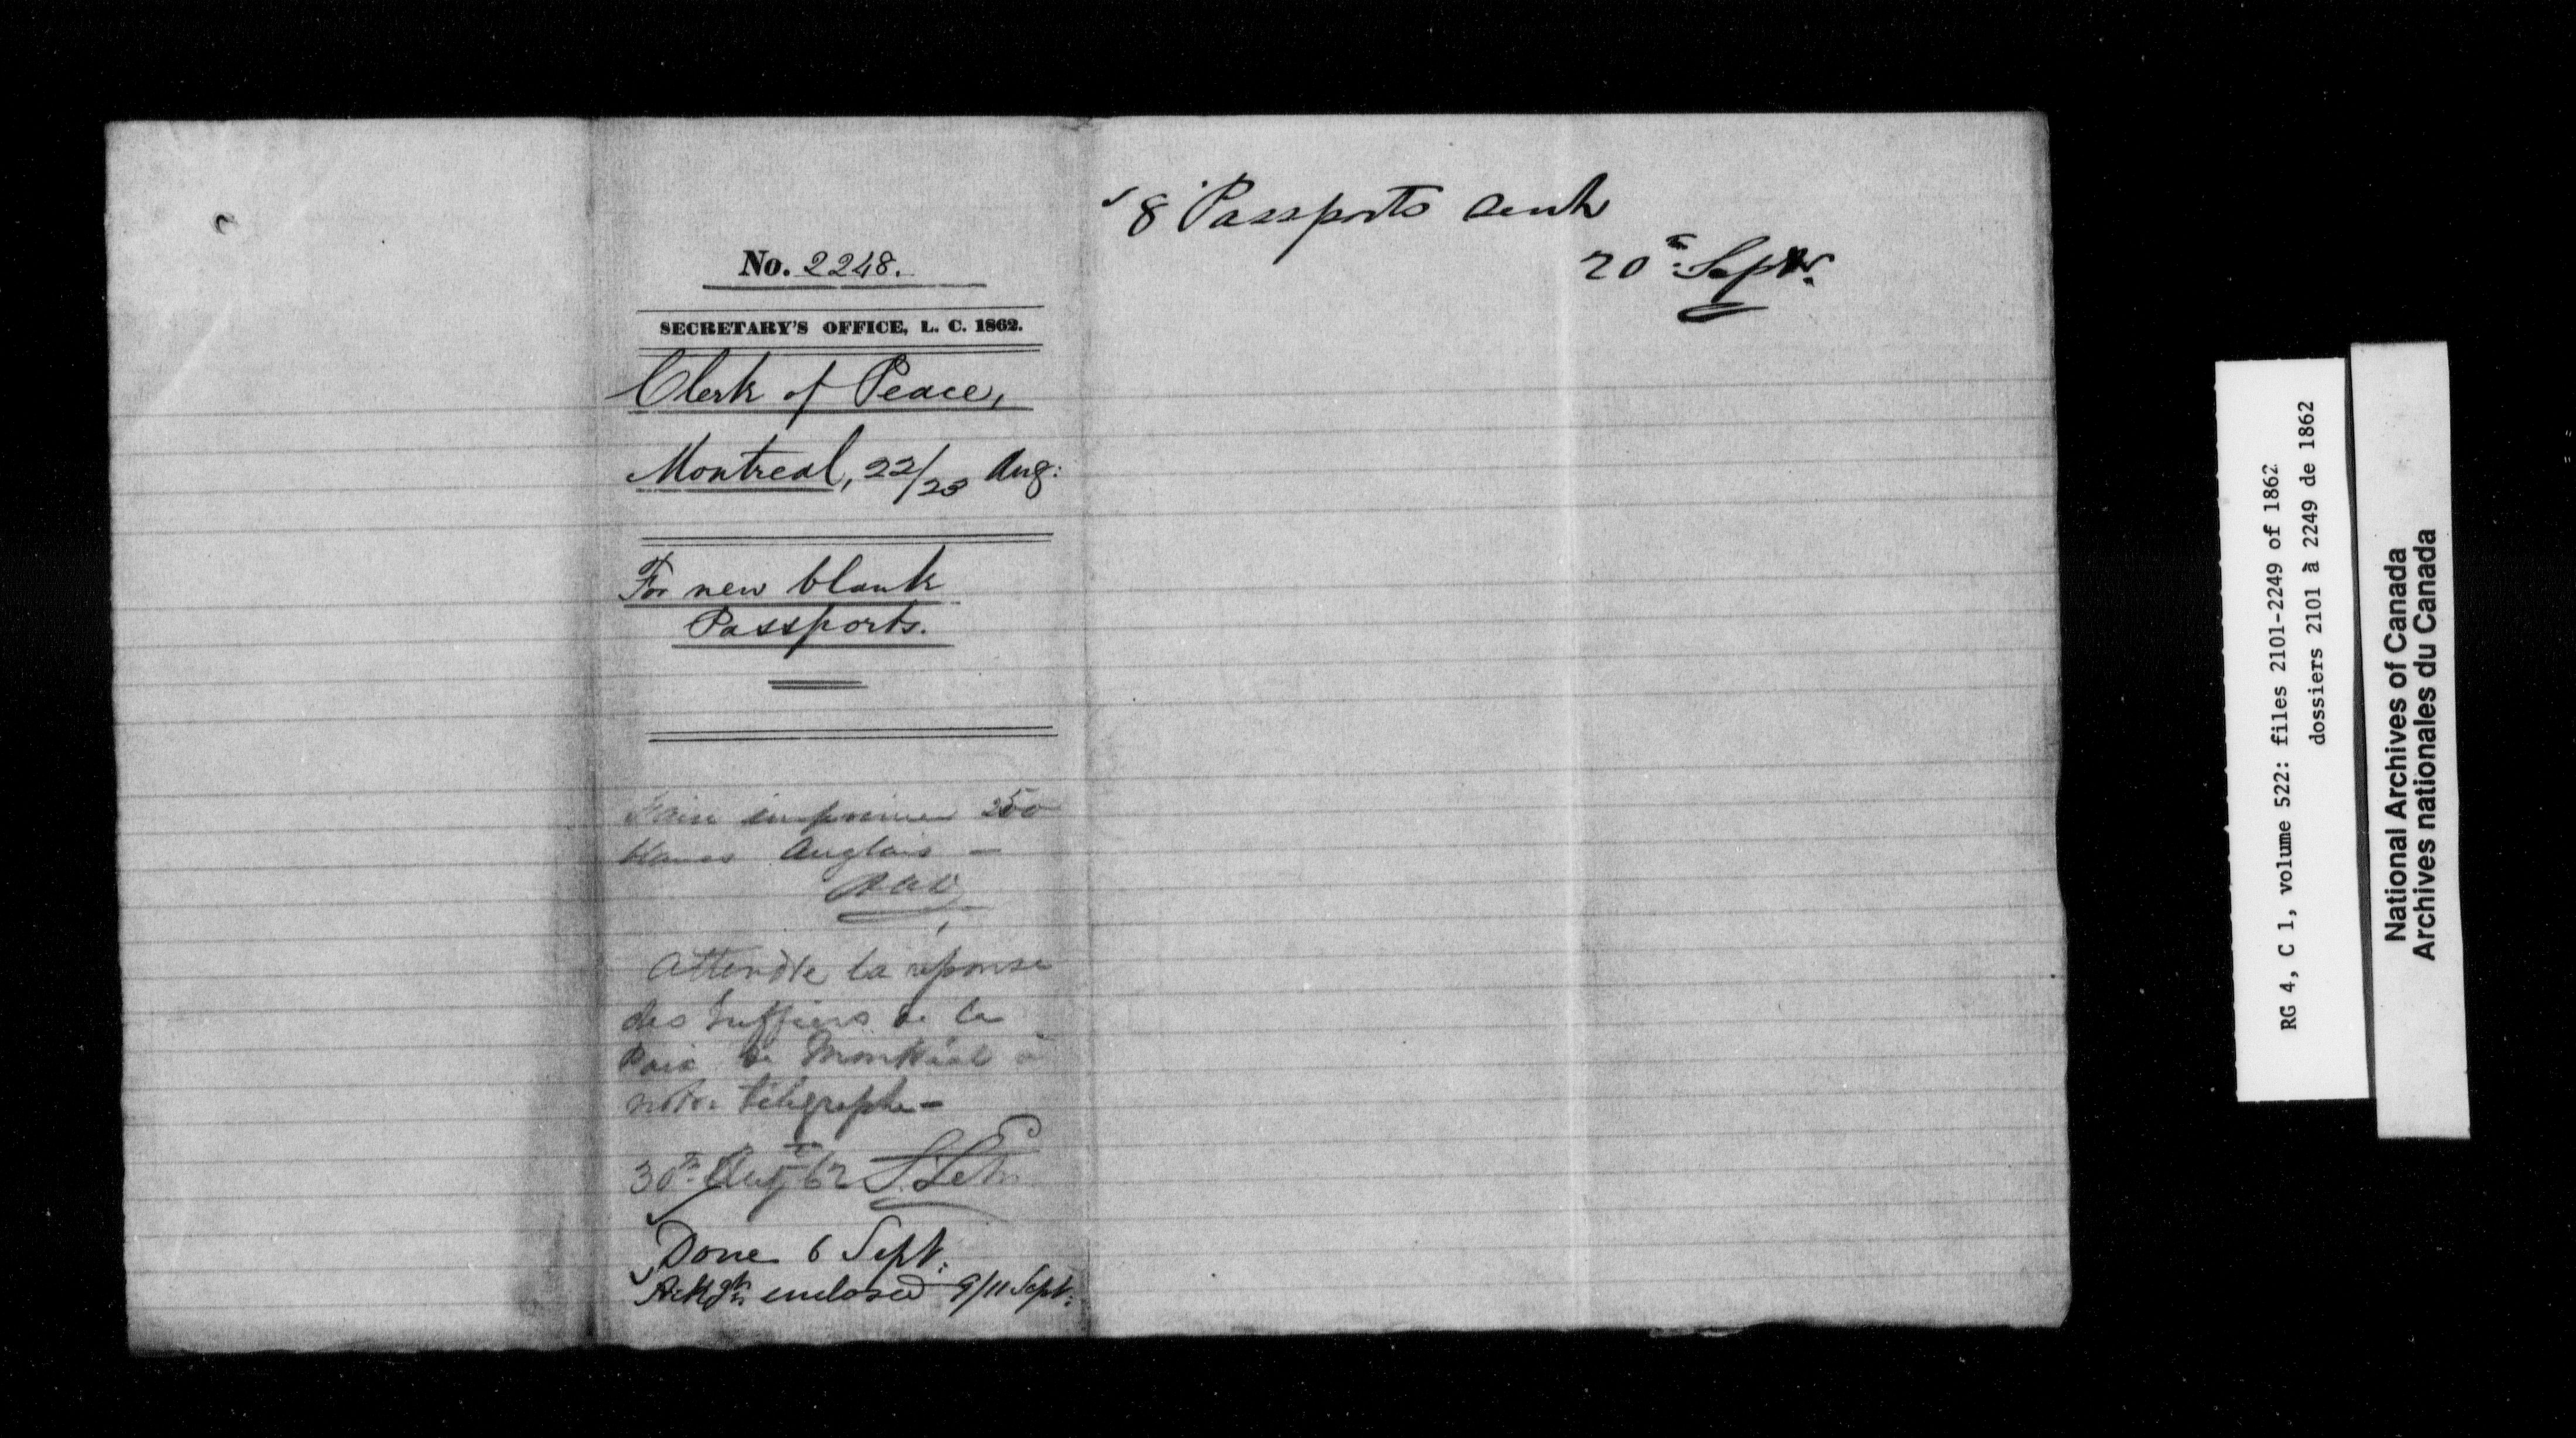 No. 2248.
SECRETARY'S OFFICE, L. C. 1862.
Clerk of Peace,
Montreal, 22/23 Aug:
For new blank
Passports.
Faire imprimer 250
blancs Anglais —
Attendre la réponse
des Greffiers de la
Paix de Montréal à
notre télégraphe —
30th Augt 62
Done 6 Sept:
enclosed 9/11 Sept:
8 Passports sent
20th Septr.
RG 4, C 1, volume 522: files 2101-2249 of 1862
dossiers 2101 à 2249 de 1862
National Archives of Canada
Archives nationales du Canada